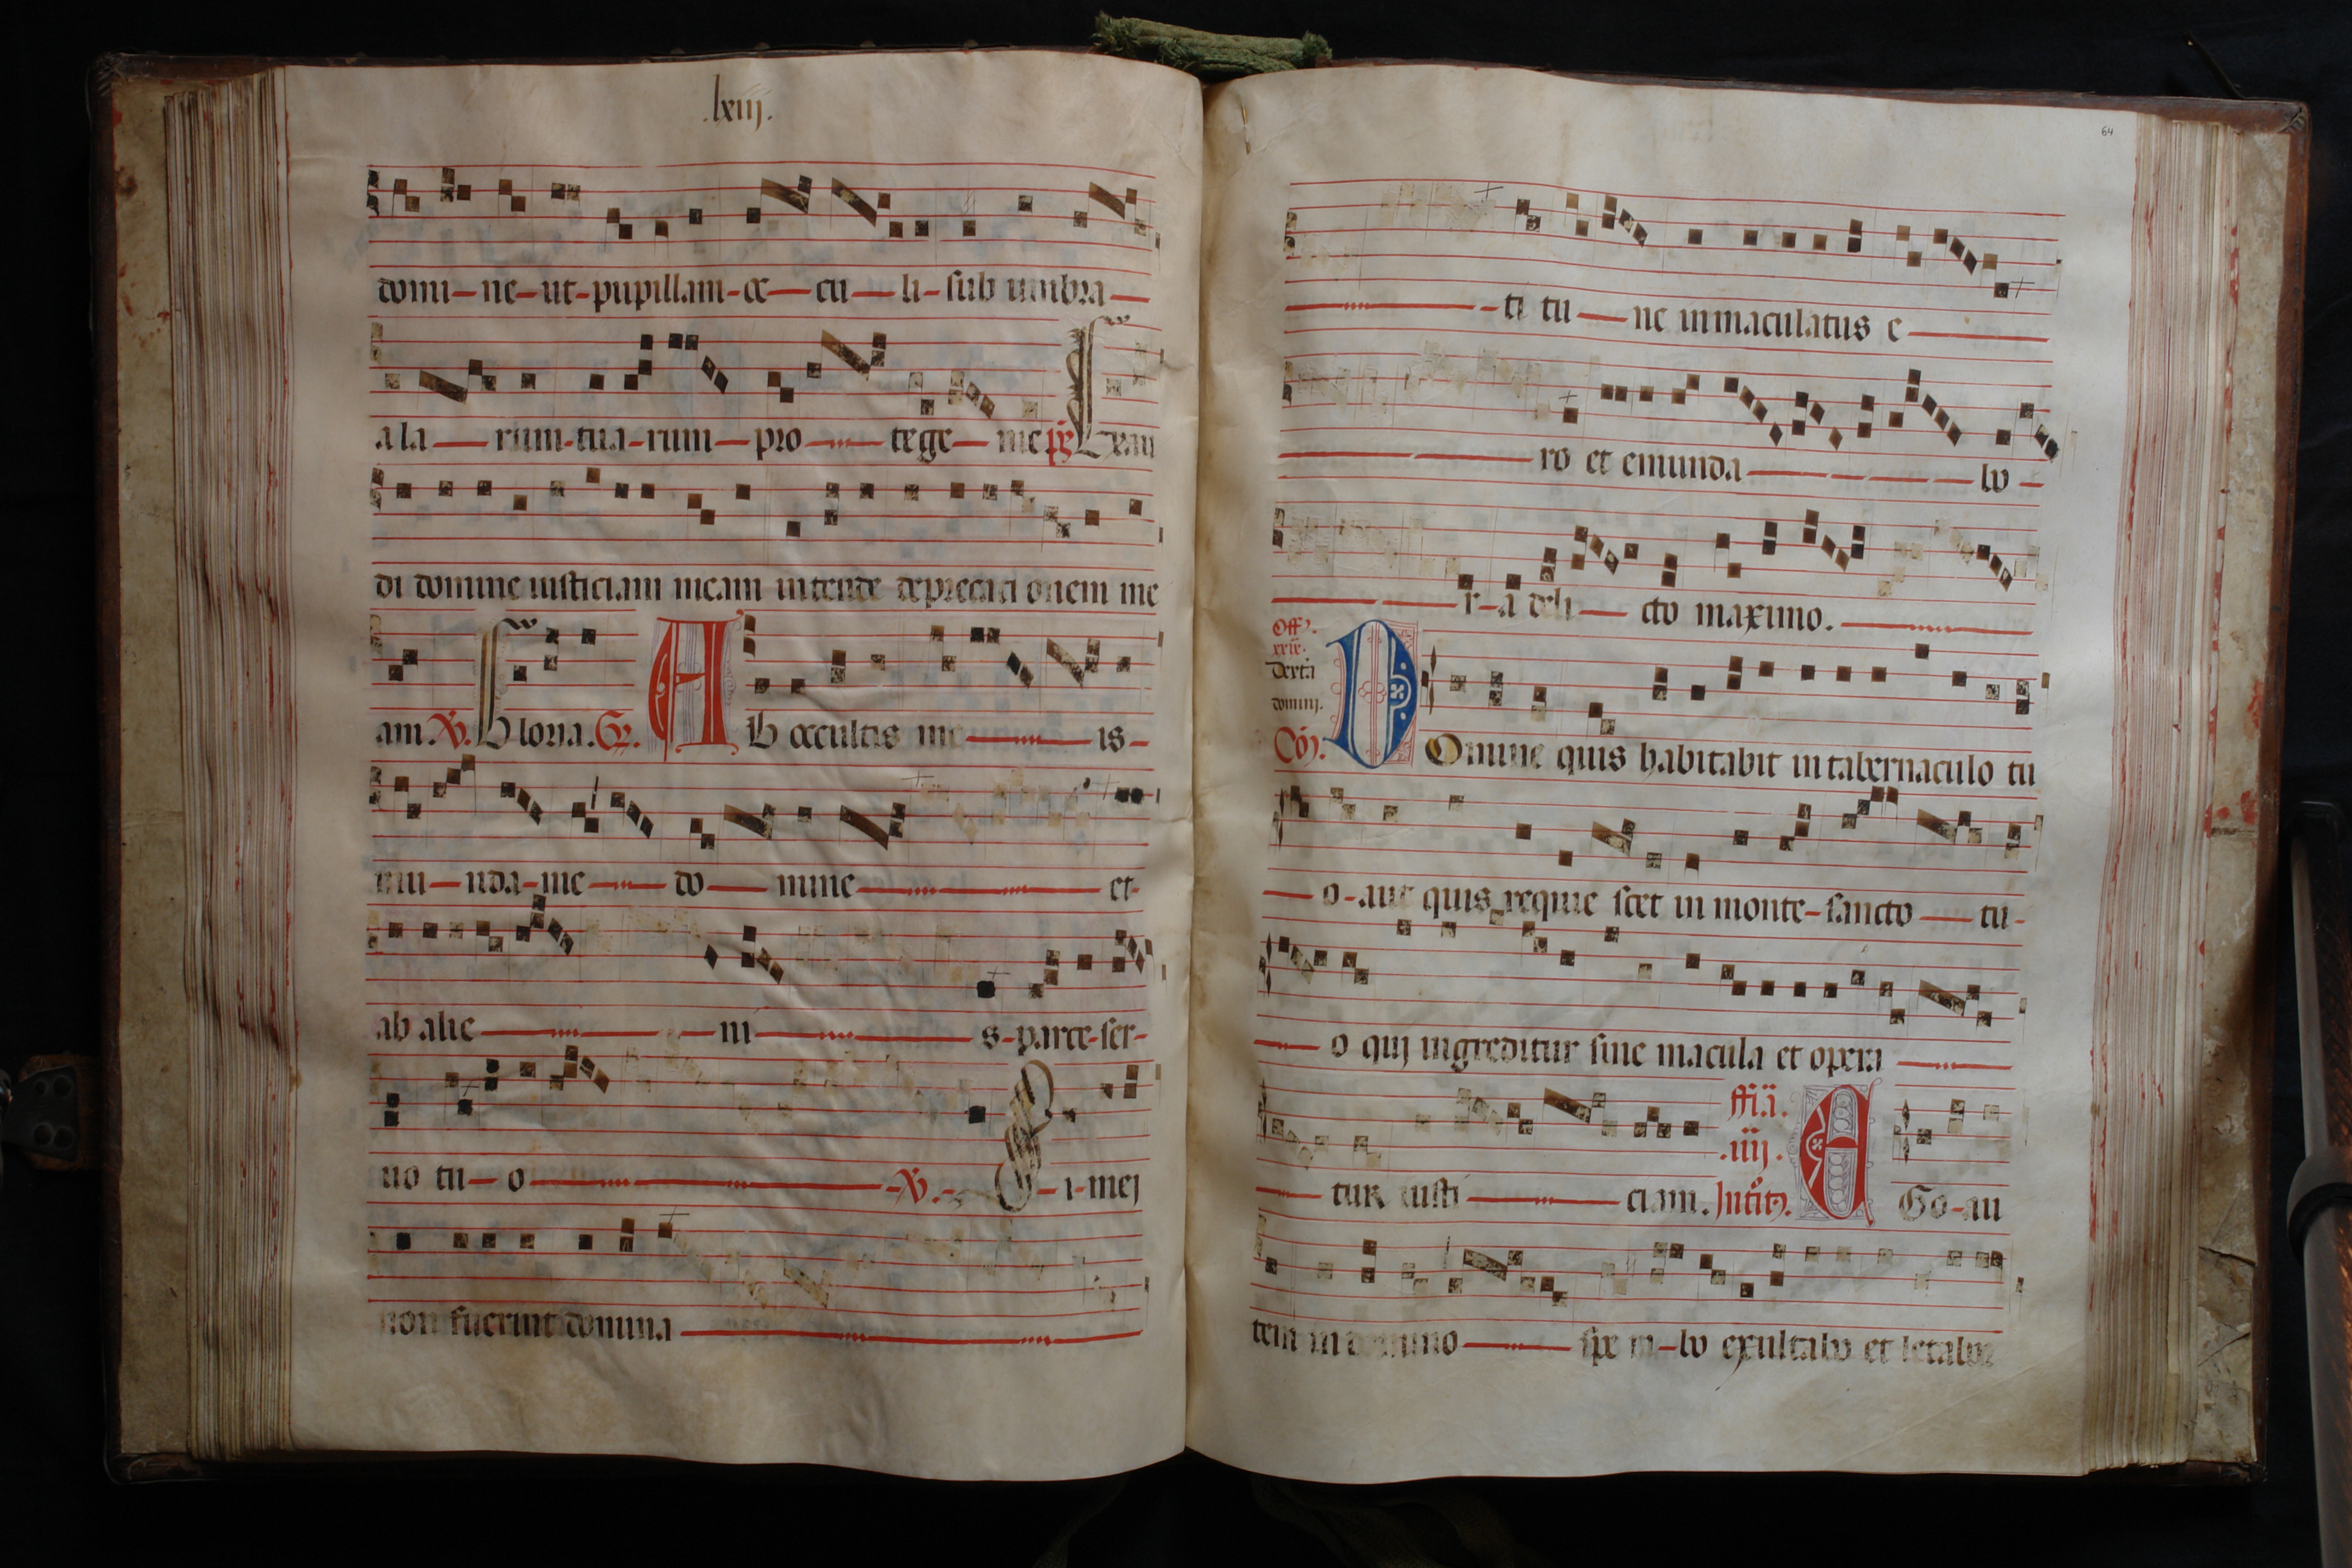 .lxiij.
domi-ne-ut-pupillam-oc-cu-li-sub umbra
ala-rum-tua-rum-pro-tege-me ps Exau
di domine iusticiam meam intende deprecacionem me
am. V. Gloria. Gr. Ab occultis me-is-
mu-nda-me-do-mine-et-
ab alie-ni-s-parce-ser-
uo tu-o-V.-Si-mei
non fuerint domina
64
-ti tu-nc inmaculatus e-
ro et emunda-bo-
r-a deli-cto maximo.
Off.
xxix.
Dextera
domini.
Co. Domine quis habitabit in tabernaculo tu
-o-aut quis requie scet in monte-sancto-tu-
-o quj ingreditur sine macula et opera
-tur iusti-ciam. ffia. .iiij. Introitus. Ego-au
tem in domino-spe ra-bo exultabo et letabor